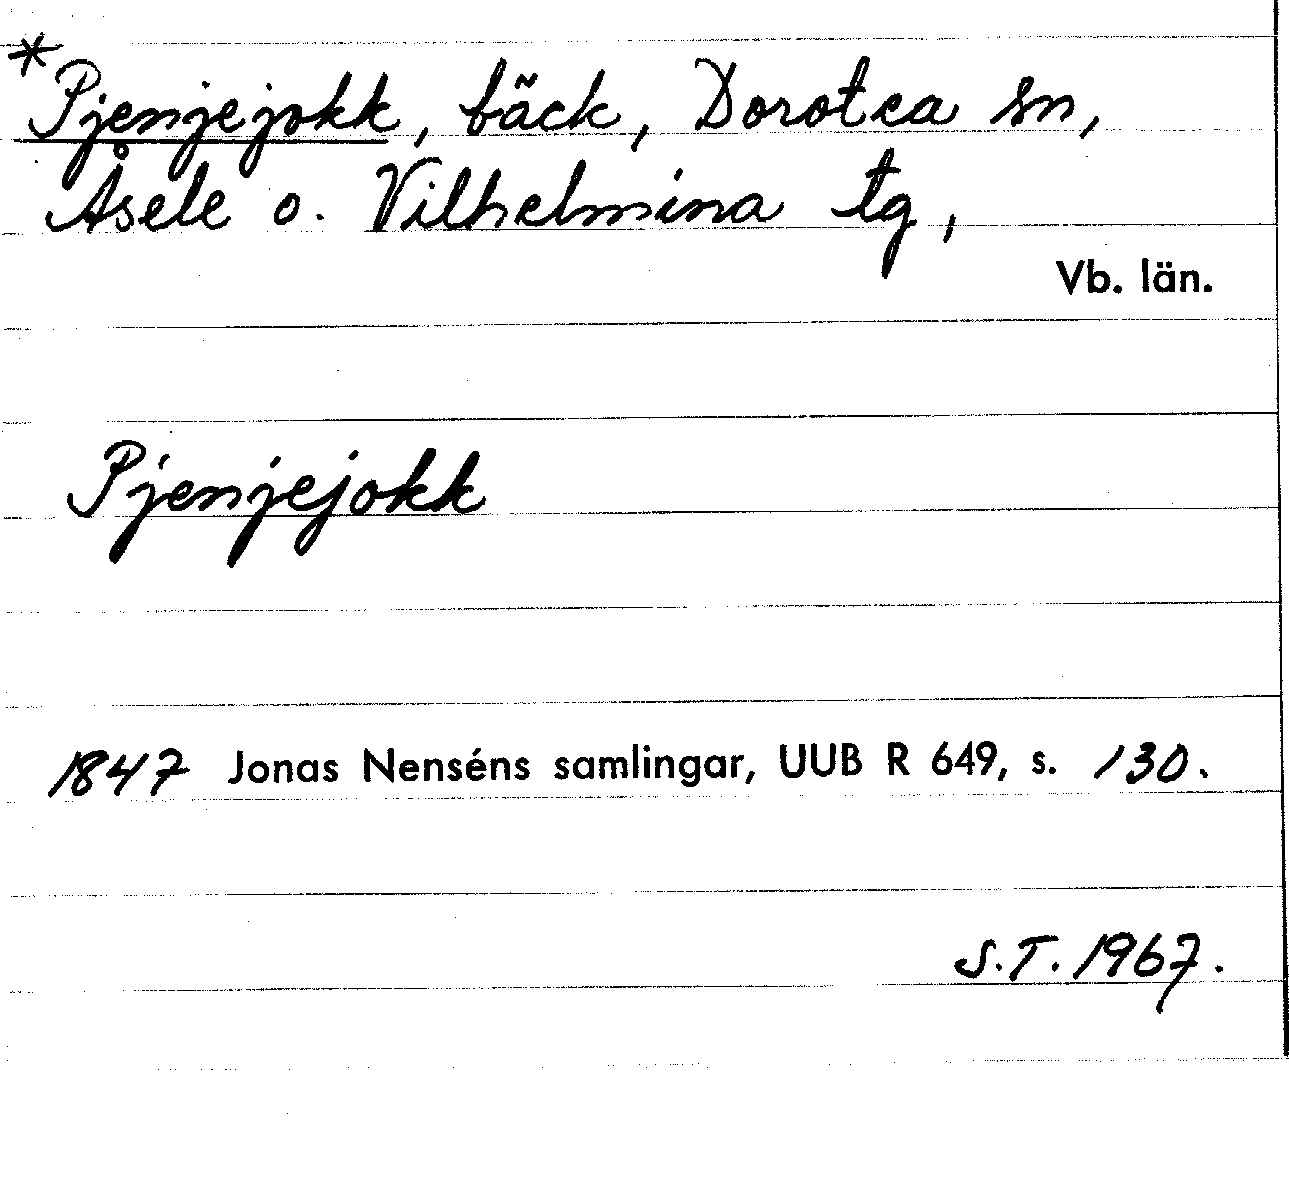 *Pjenjejokk, bäck, Dorotea sn,
Åsele o. Vilhelmina tg,
Vb. län.
Pjenjejokk
1847 Jonas Nenséns samlingar, UUB R 649, s. 130.
S.T. 1967.